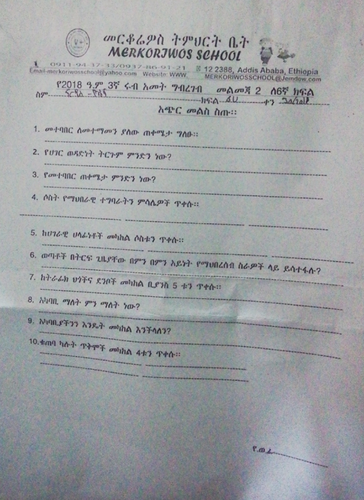 መርቆሬዎስ ትምህርት ቤት
MERKORIWOS SCHOOL
0911-94-37-33/0937-86-91-71 12388, Addis Ababa, Ethiopia
Email-merkoriwosschool@yahoo.com Website WWW. MERKORIWOSSCHOOL@Jemdow.com
የ2018 ዓ.ም 3ኛ ሩብ አመት ግብረገብ መልመጃ 2 ለ6ኛ ክፍል
ስም ክፍል ቀን
አጭር መልስ ስጡ።
1. መተባበር ለመተማመን ያለው ጠቀሜታ ግለፁ።
2. የሀገር ወዳድነት ትርጉም ምንድን ነው?
3. የመተባበር ጠቀሜታ ምንድን ነው?
4. ሶስት የማህበራዊ ተግባራትን ምሳሌዎች ጥቀሱ።
5. ከሀገራዊ ሀላፊነቶች መካከል ሶስቱን ጥቀሱ።
6. ወጣቶች በትርፍ ጊዜያቸው በምን በምን አይነት የማህበረሰብ ስራዎች ላይ ይሳተፋሉ?
7. ከትራፊክ ህጎችና ደንቦች መካከል ቢያንስ 5 ቱን ጥቀሱ።
8. አካባቢ ማለት ምን ማለት ነው?
9. አካባቢያችንን እንዴት መካከል እንችላለን?
10. ቁጠባ ካሉት ጥቅሞች መካከል 4ቱን ጥቀሱ።
የ.ወ.ፊ